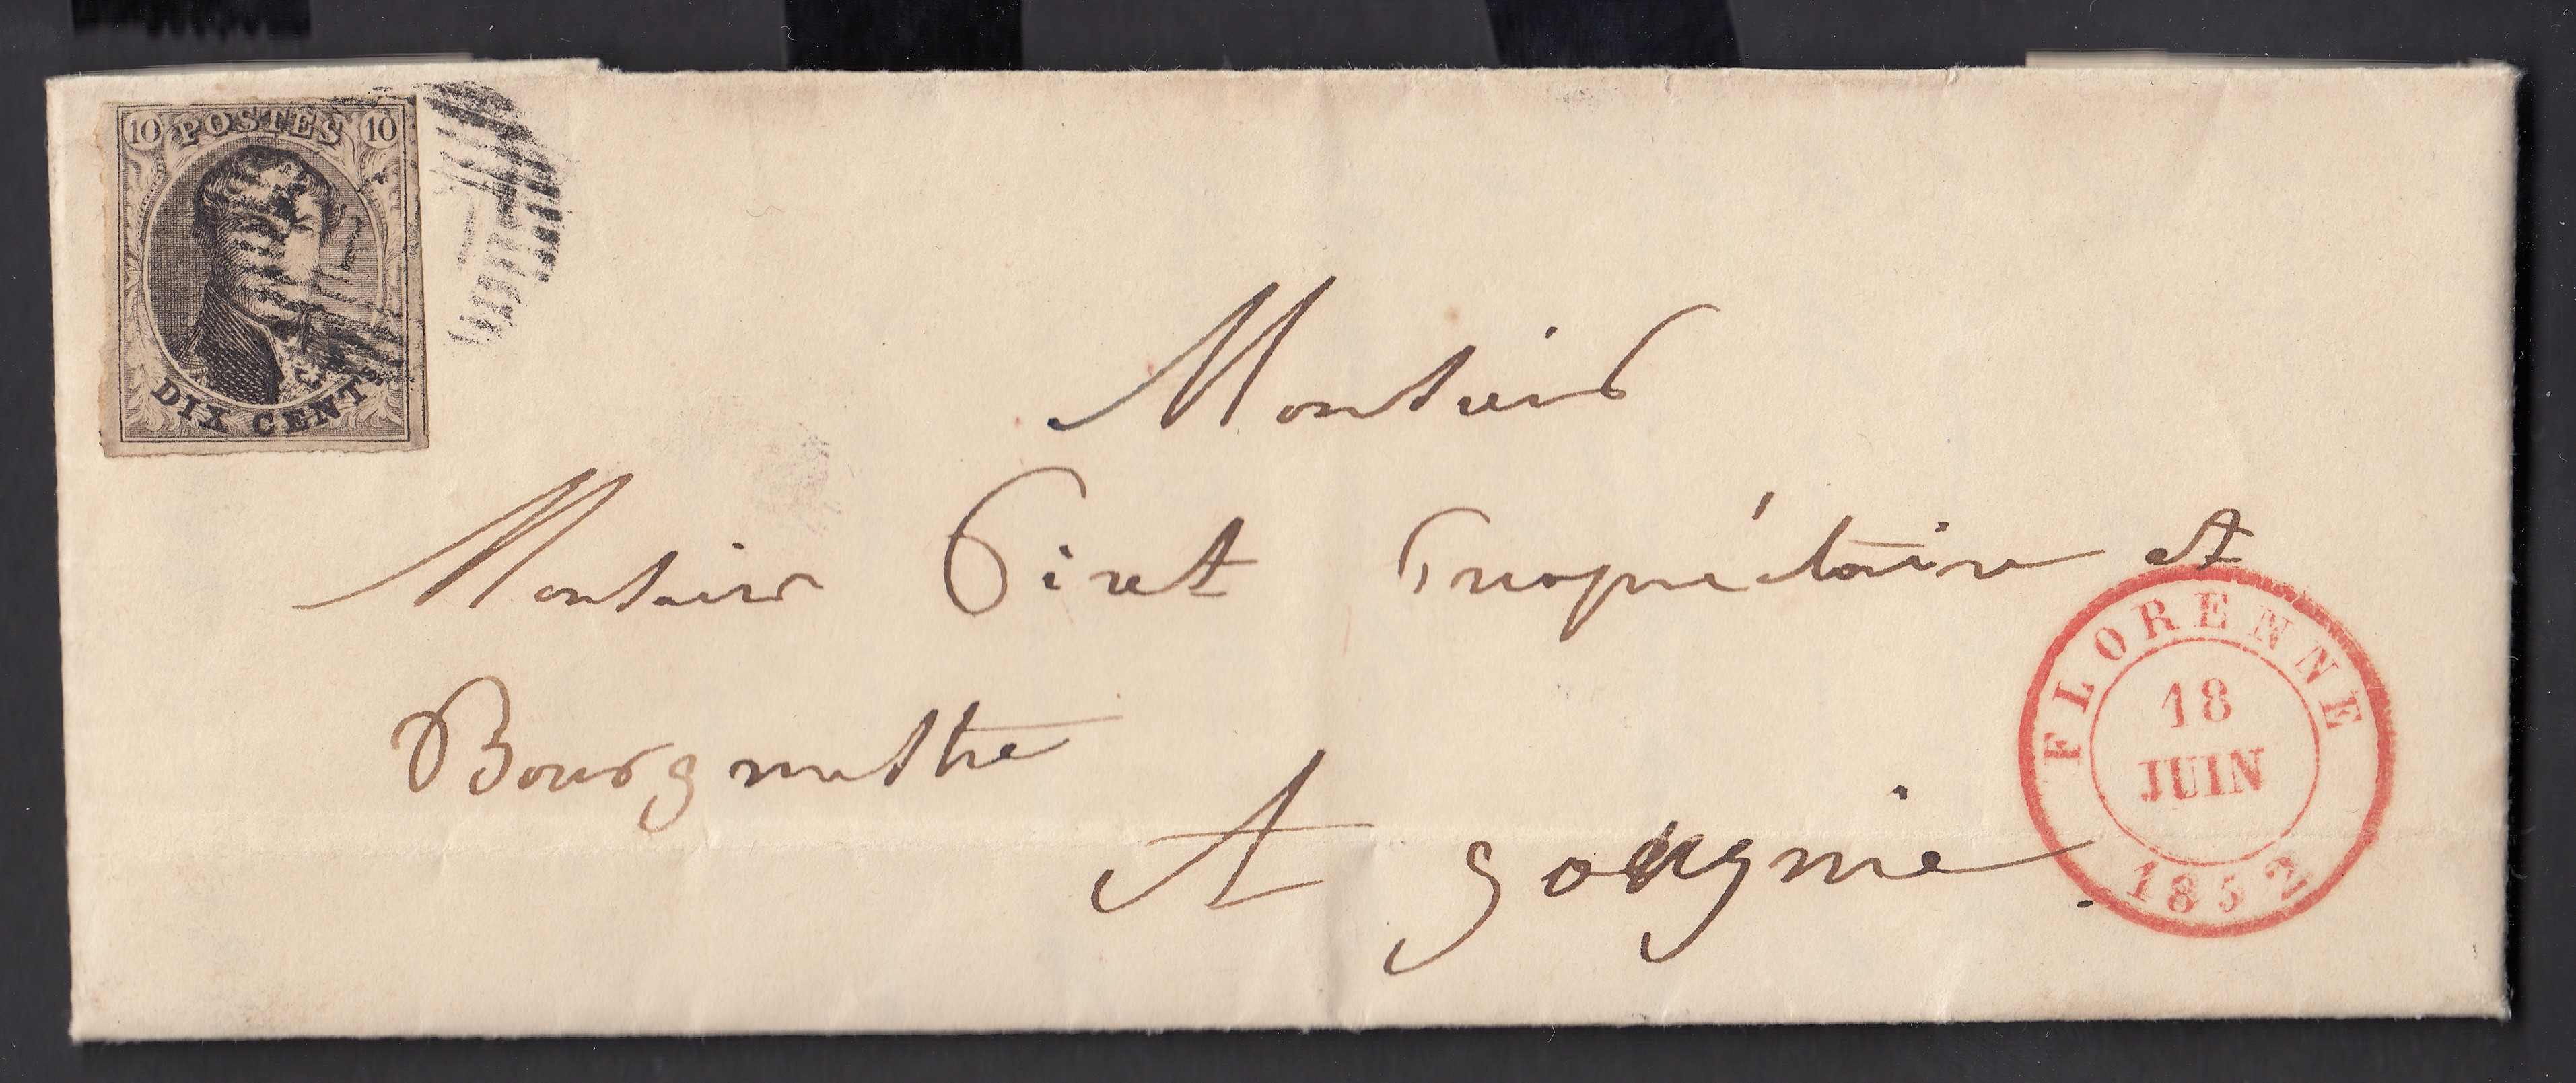 10 POSTES 10
DIX CENTS
Monsieur
Monsieur Piret Propriétaire et
Bourgmestre
A gougnie.
FLORENNE
18
JUIN
1852